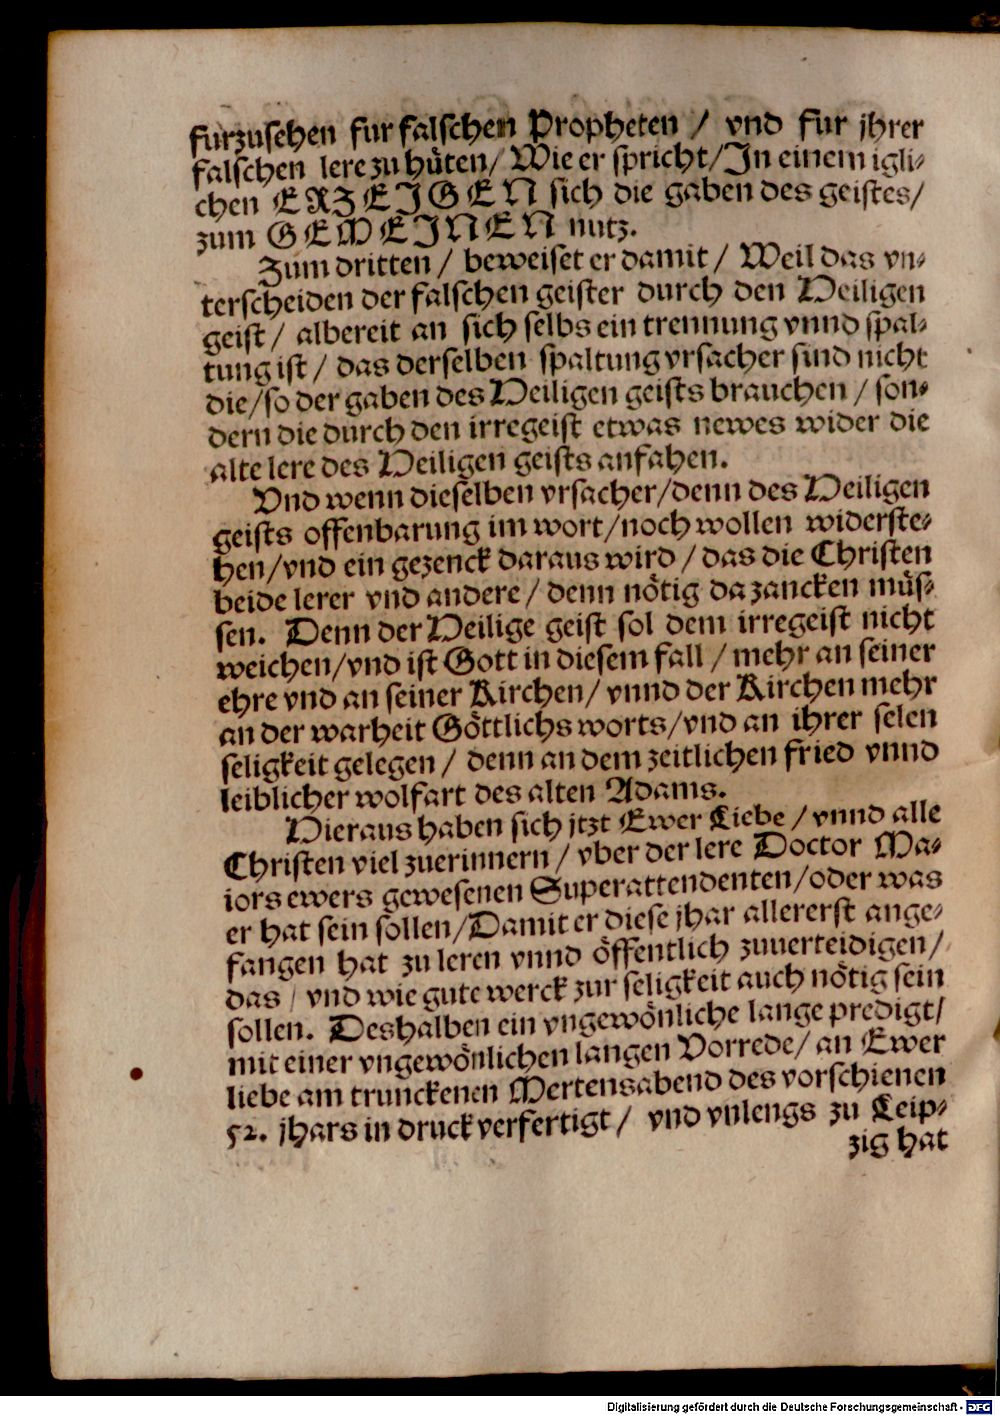 furzusehen fur falschen Propheten / vnd fur jhrer
falschen lere zu hüten/ Wie er spricht/ In einem igli-
chen ERZEIGEN sich die gaben des geistes/
zum GEMEINEN nutz.
Zum dritten / beweiset er damit / Weil das vn-
terscheiden der falschen geister durch den Heiligen
geist / albereit an sich selbs ein trennung vnnd spal-
tung ist / das derselben spaltung vrsacher sind nicht
die/so der gaben des Heiligen geists brauchen / son-
dern die durch den irregeist etwas newes wider die
alte lere des Heiligen geists anfahen.
Vnd wenn dieselben vrsacher/denn des Heiligen
geists offenbarung im wort/noch wollen widerste-
hen/vnd ein gezenck daraus wird / das die Christen
beide lerer vnd andere / denn nötig da zancken müs-
sen. Denn der Heilige geist sol dem irregeist nicht
weichen/vnd ist Gott in diesem fall / mehr an seiner
ehre vnd an seiner Kirchen/ vnnd der Kirchen mehr
an der warheit Göttlichs worts/vnd an ihrer selen
seligkeit gelegen / denn an dem zeitlichen fried vnnd
leiblicher wolfart des alten Adams.
Hieraus haben sich jtzt Ewer Liebe / vnnd alle
Christen viel zuerinnern / vber der lere Doctor Ma-
iors ewers gewesenen Superattendenten/oder was
er hat sein sollen/Damit er diese jhar allererst ange-
fangen hat zu leren vnnd öffentlich zuuerteidigen/
das / vnd wie gute werck zur seligkeit auch nötig sein
sollen. Deshalben ein vngewönliche lange predigt/
mit einer vngewönlichen langen Vorrede/ an Ewer
liebe am trunckenen Mertensabend des vorschienen
52. jhars in druck verfertigt / vnd vnlengs zu Leip-
zig hat
Digitalisierung gefördert durch die Deutsche Forschungsgemeinschaft - DFG